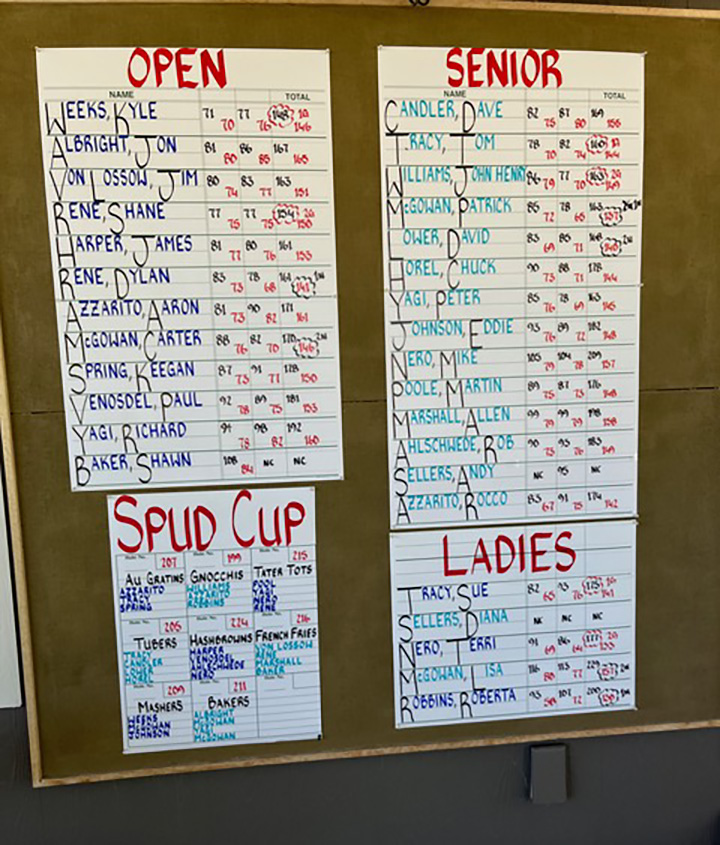 OPEN
NAME TOTAL
WEEKS, KYLE 71 77 148
70 76 146
ALBRIGHT, JON 81 86 167
80 85 165
VON LOSSOW, JIM 80 83 163
74 77 151
RENE, SHANE 77 77 154
75 75 150
HARPER, JAMES 81 80 161
77 76 153
RENE, DYLAN 83 78
73 68 141
AZZARITO, AARON 81 90 171
73 82
MCGOWAN, CARTER 88 82 170
76 70 146
SPRING, KEEGAN 87 91 178
73 77 150
VENOSDEL, PAUL 92 89 181
78 75 153
YAGI, RICHARD 94 98 192
78 82 160
BAKER, SHAWN 108 NC NC
84
SENIOR
NAME TOTAL
CANDLER, DAVE 82 87 169
75 80 155
TRACY, TOM 78 82 160
70 74 144
WILLIAMS, JOHN HENRY 86 77 163
79 70 149
MCGOWAN, PATRICK 85 78 163
72 65 137
LOWER, DAVID 83 85 168
69 71 140
HOREL, CHUCK 90 88 178
73 71 144
YAGI, PETER 85 78 163
76 69 145
JOHNSON, EDDIE 93 89 182
76
NERO, MIKE 105 104 209
79 78 157
POOLE, MARTIN 89 87 176
75 73 148
MARSHALL, ALLEN 99 99 198
79 79 158
AHLSCHWEDE, ROB 90 93 183
73 76 149
SELLERS, ANDY NC 95 NC
AZZARITO, ROCCO 83 91 174
67 75 142
SPUD CUP
207 199 215
AU GRATINS GNOCCHIS TATER TOTS
AZZARITO WILLIAMS POOL
TRACY AZZARITO YAGI
SPRING ROBBINS NERO
RENE
205 224 216
TUBERS HASHBROWNS FRENCH FRIES
TRACY HARPER VON LOSSOW
CANDLER VENOSDEL RENE
LOWER AHLSCHWEDE MARSHALL
HOREL NERO BAKER
209 211
MASHERS BAKERS
WEEKS ALBRIGHT
MCGOWAN MCGOWAN
JOHNSON YAGI
MCGOWAN
LADIES
TRACY, SUE 82 93 175
65 76 141
SELLERS, DIANA NC NC NC
NERO, TERRI 91 86 177
69 64 133
MCGOWAN, LISA 116 113 229
80 77 157
ROBBINS, ROBERTA 93 107 200
72